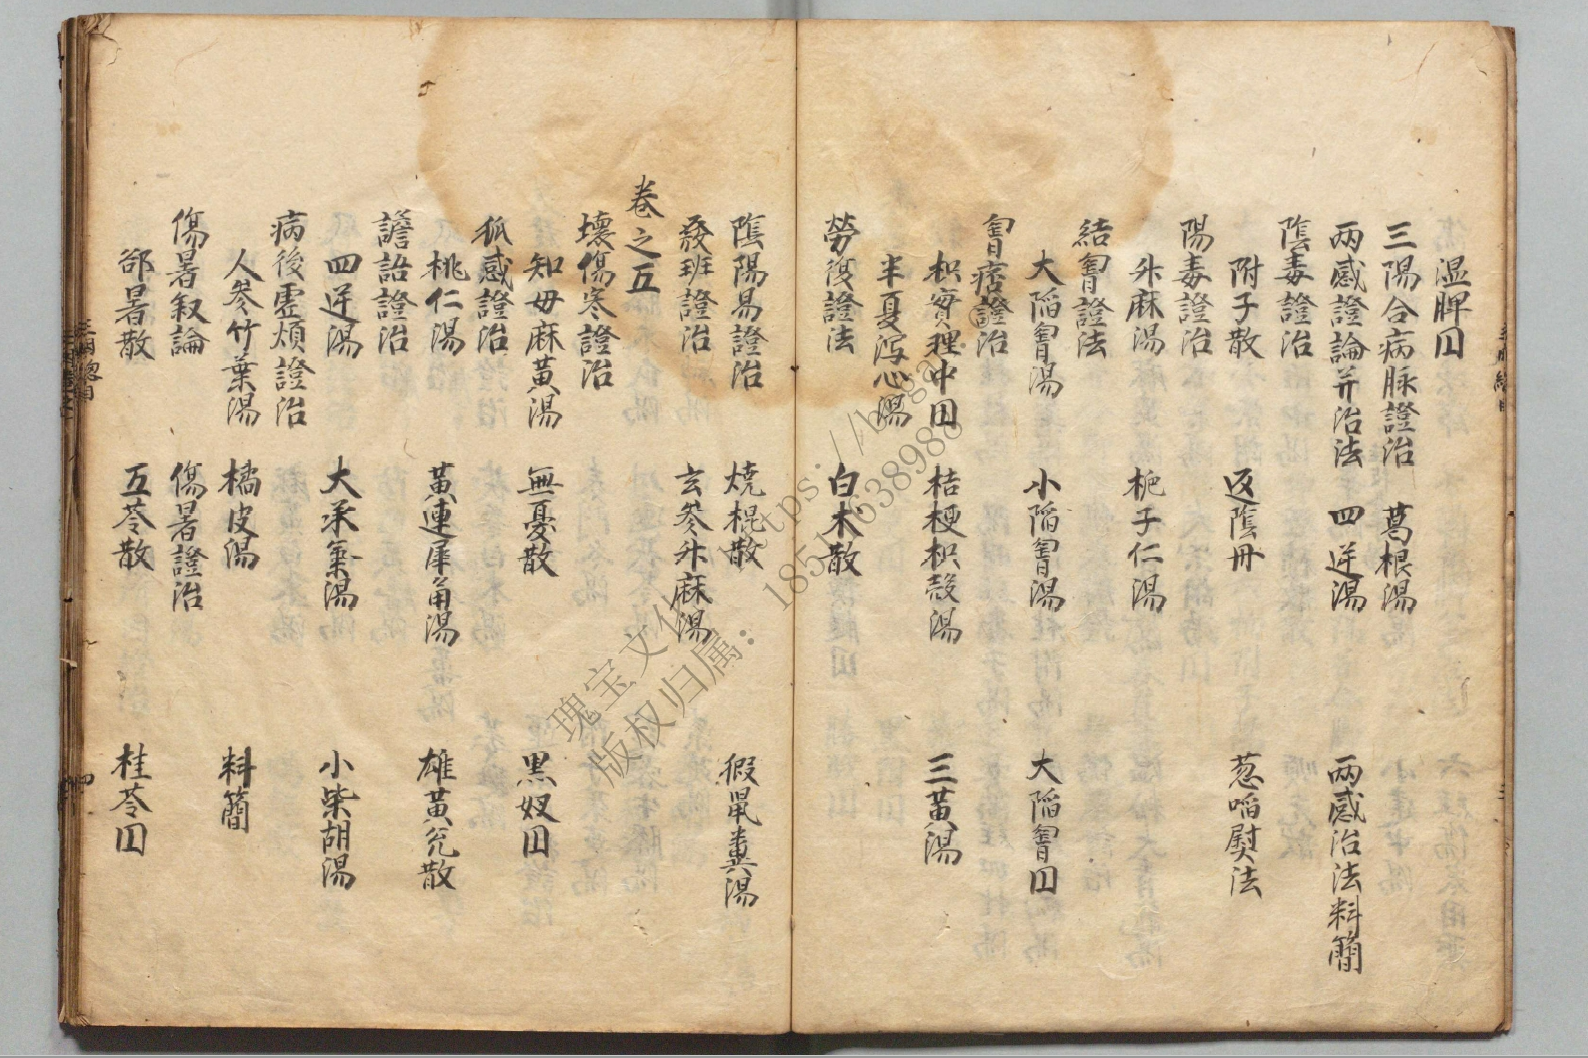 温脾囙
三陽合病脉證治 葛根湯
两感證論并治法 四逆湯 两感治法料簡
陰毒證治
附子散 返陰丹 葱啗熨法
陽毒證治
升麻湯 梔子仁湯
結胷證法
大陷胷湯 小陷胷湯 大陷胷囙
胷痞證治
枳實理中囙 桔梗枳殼湯 三黄湯
半夏瀉心湯
勞復證法 白术散
陰陽易證治 燒棍散 猳鼠糞湯
發班證治 玄參升麻湯
卷之五
壞傷寒證治
知母麻黄湯 無憂散 黒奴囙
狐惑證治
桃仁湯 黄連犀角湯 雄黄兊散
譫語證治
四逆湯 大承氣湯 小柴胡湯
病後虛煩證治
人參竹葉湯 橘皮湯 料簡
傷暑叙論 傷暑證治
郤暑散 五苓散 桂苓囙
四
瑰宝文化
版权归属：